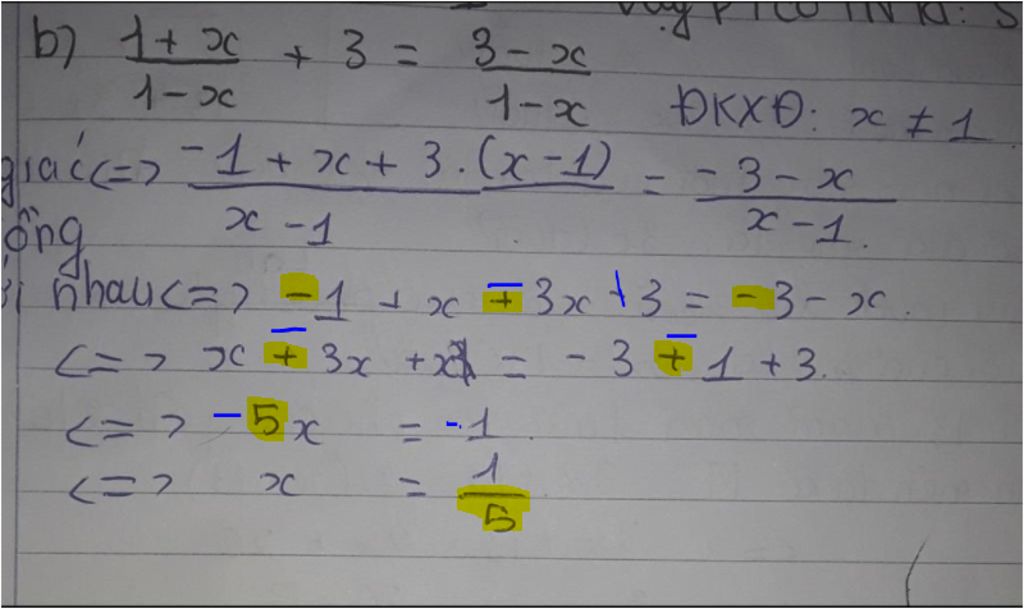 Vậy PTCĐ TN là: S
b) (1 + x)/(1 - x) + 3 = (3 - x)/(1 - x) ĐKXĐ: x ≠ 1
giác <=> (-1 + x + 3.(x - 1))/(x - 1) = (-3 - x)/(x - 1).
ông
nhau <=> -1 + x + 3x + 3 = -3 - x.
<=> x + 3x + x = -3 + 1 + 3.
<=> -5x = -1.
<=> x = 1/5